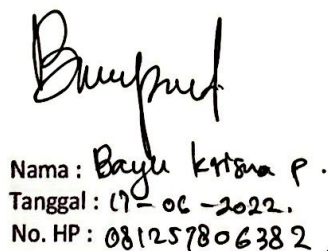 Nama : Bayu Krisna P.
Tanggal : 17-06-2022.
No. HP : 081257806382